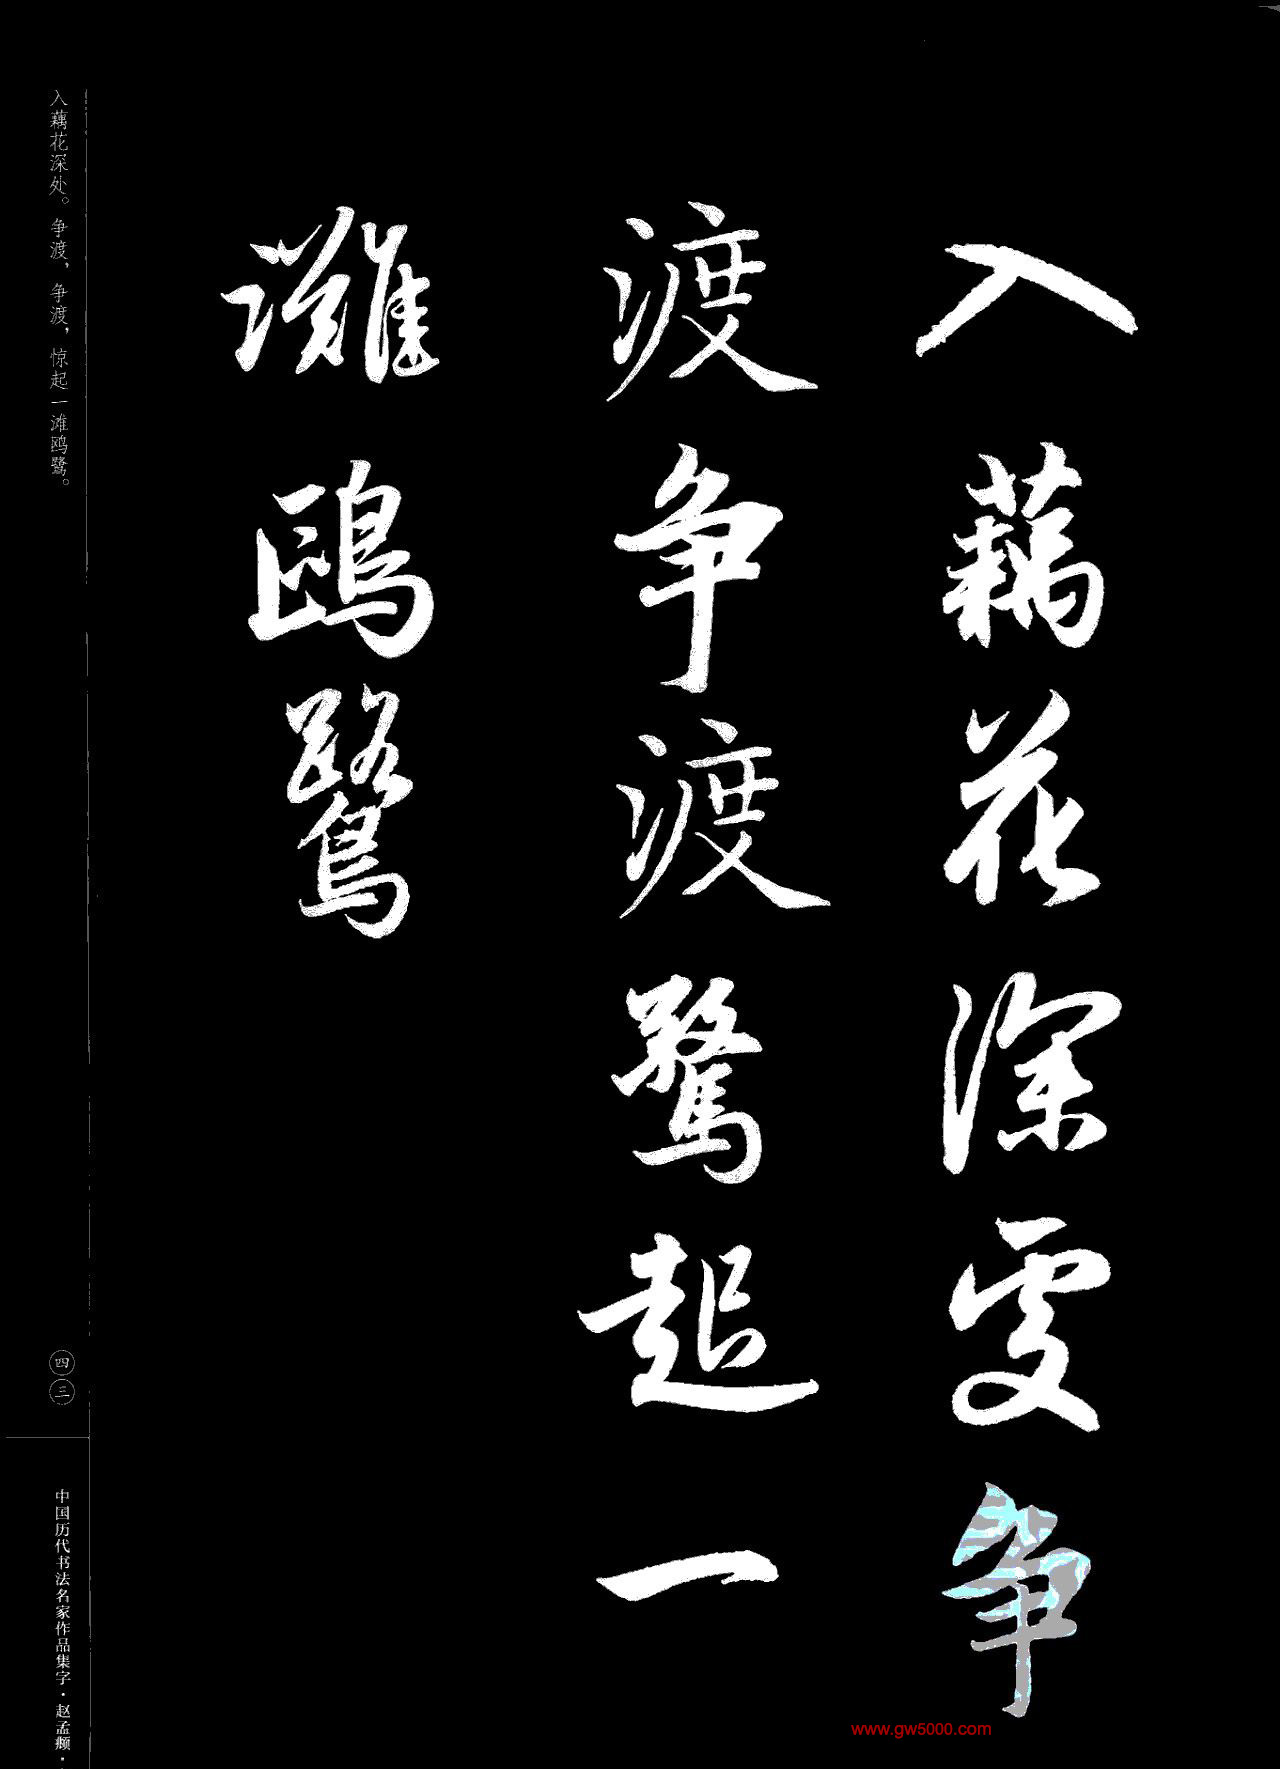 入藕花深處争
渡争渡驚起一
灘鷗鷺
入藕花深处。争渡，争渡，惊起一滩鸥鹭。
四三
中国历代书法名家作品集字·赵孟頫·
www.gw5000.com